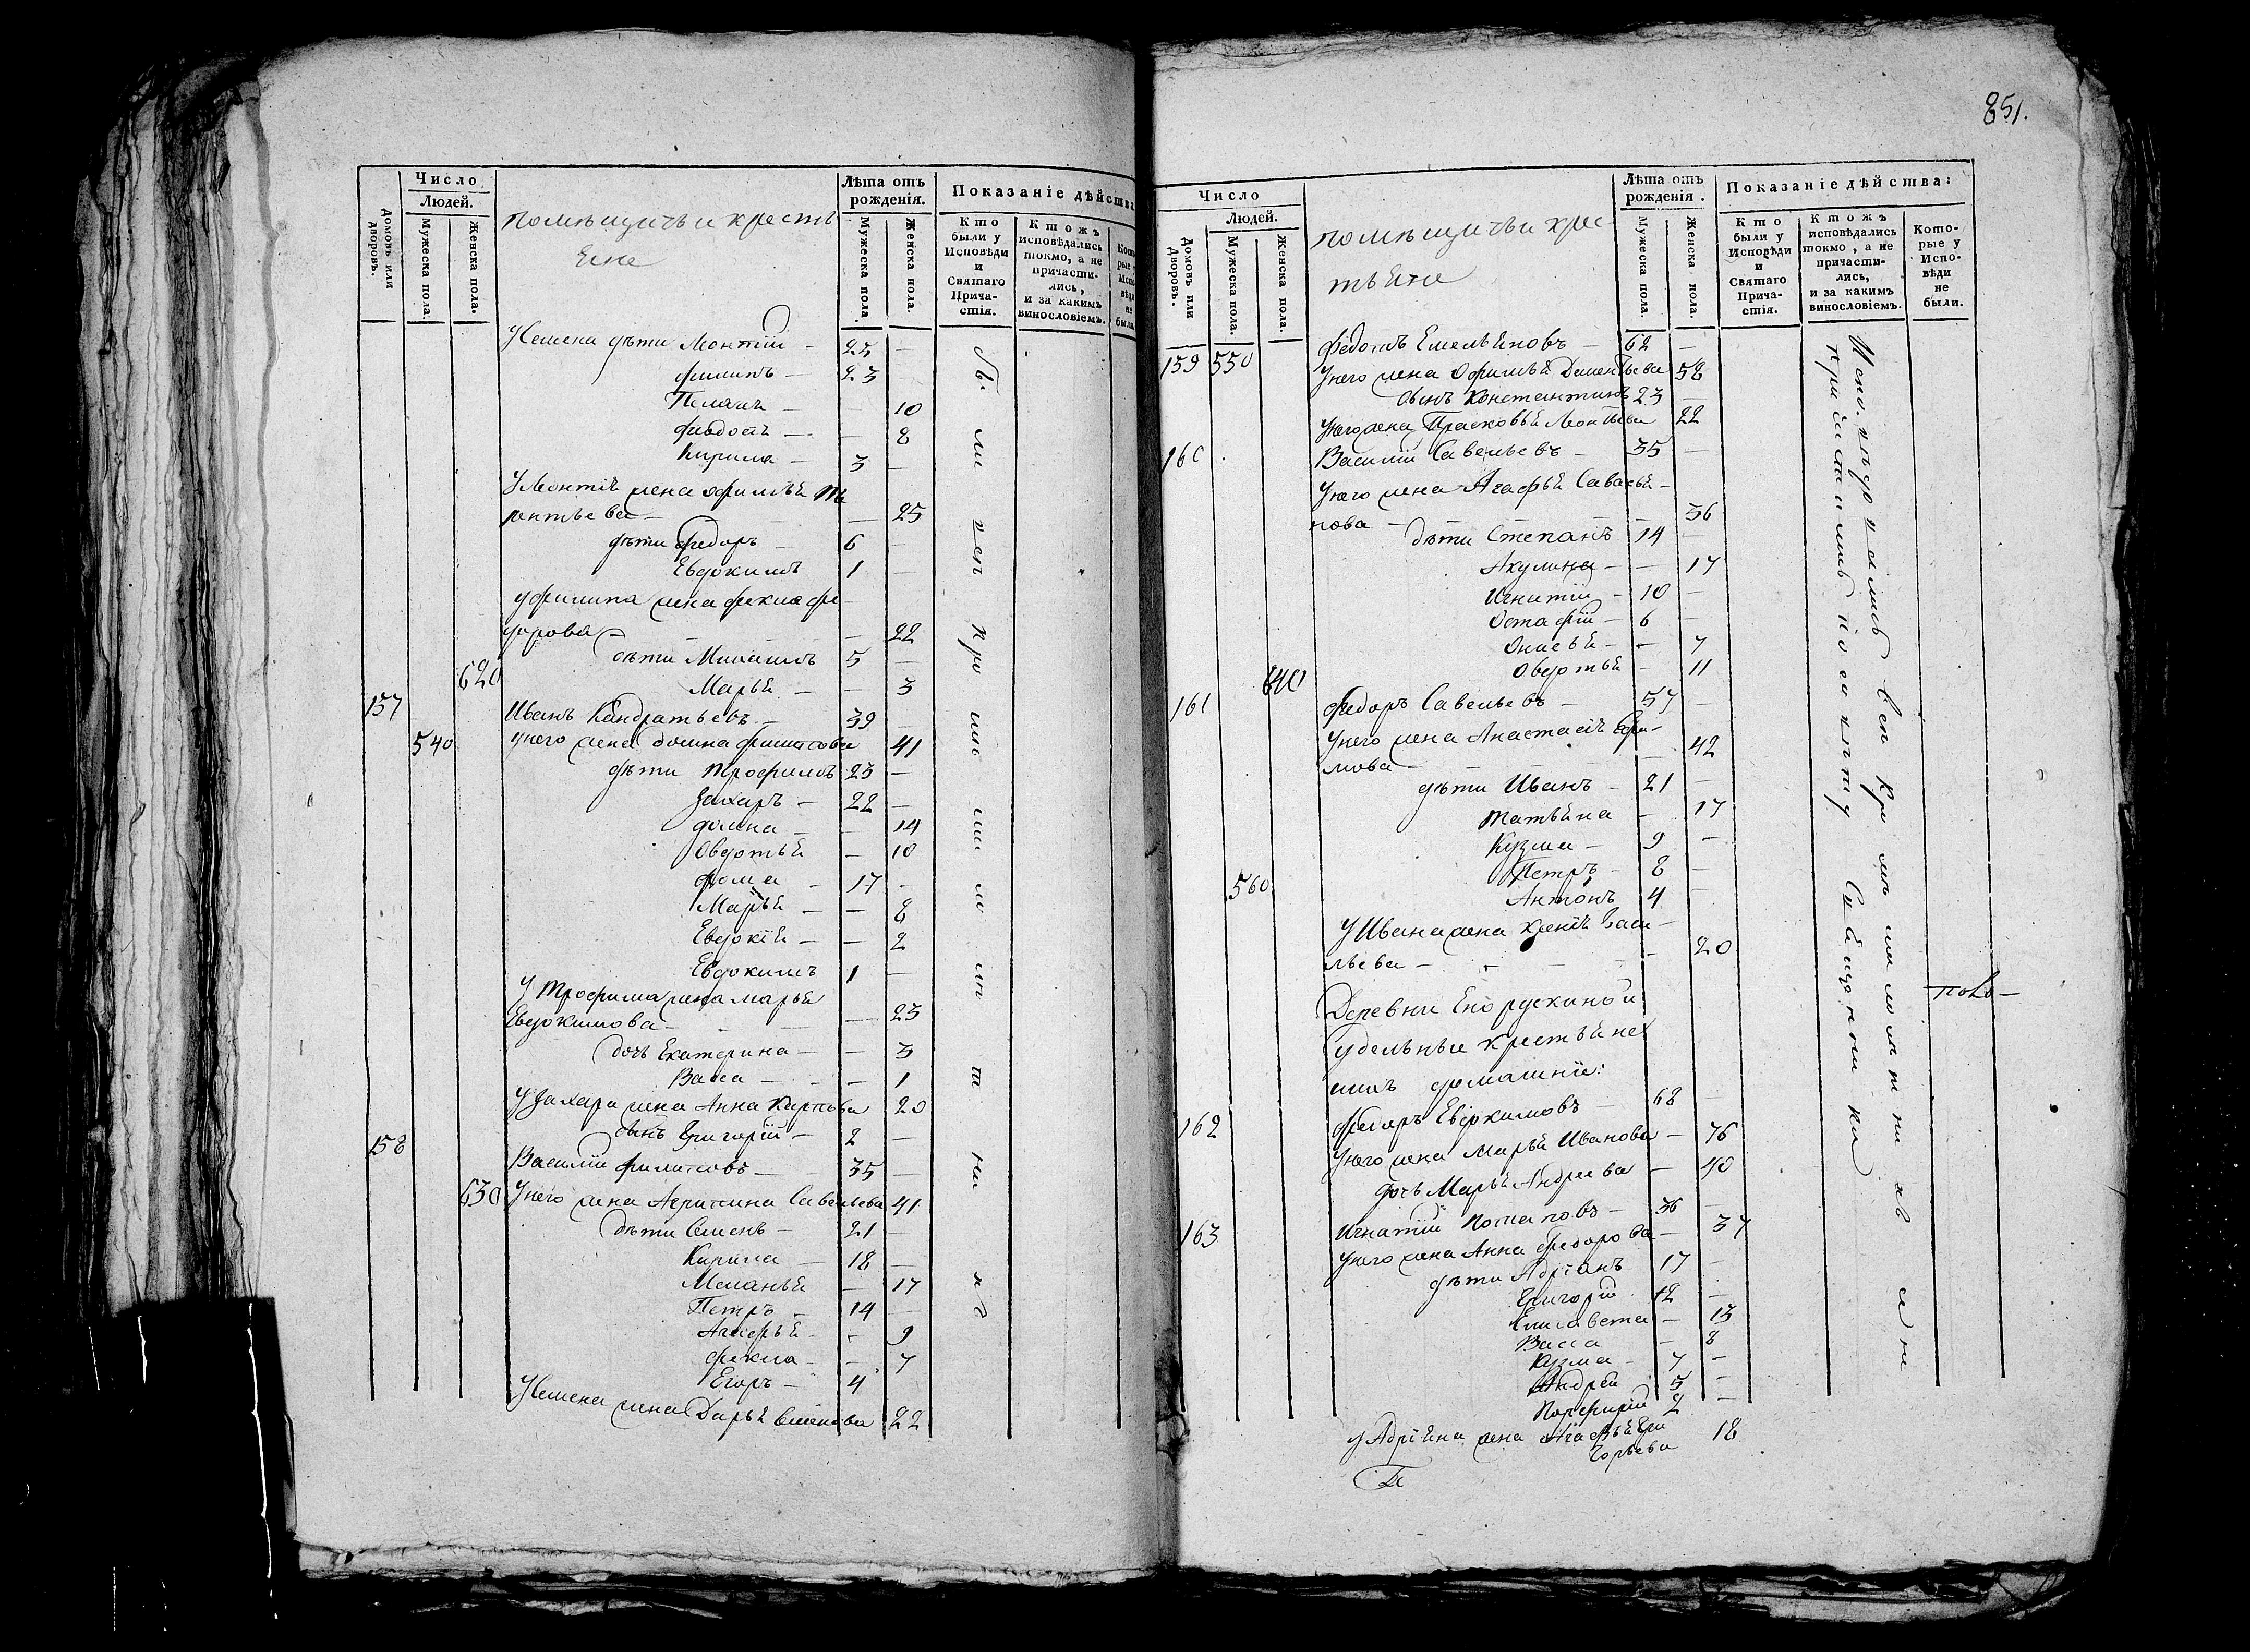 Число
Людей.
Домовъ или дворовъ.
Мужеска пола.
Женска пола.
помѣщичьи кресть
яне
Лѣта отъ
рожденія.
Мужеска пола.
Женска пола.
Показаніе дѣйства
Кто
были у
Исповѣди
и
Святаго
Прича-
стія.
Ктожъ
исповѣдались
токмо, а не
причасти-
лись,
и за какимъ
винословіемъ.
У Семена дѣти Леонтій - 25 -
филипъ - 23
Пелагія - 10
федосія - - 8
Кирила - 3 -
У Леонтія жена Офимья Те
рентьева - - 25
дѣти Федоръ - 6 -
Евдокимъ 1 -
У филипа жена фекла фе-
дорова - - 22
дѣти Михаилъ 5 -
620 Марья - - 3
157 Иванъ Кандратьевъ - 39 -
540 У него жена домна филипова 41
дѣти Трофимъ 23 -
Захаръ - 22 -
домна - - 14
Овдотья - 10
фома - 17 -
Марья - - 8
Евдокія - - 2
Евдокимъ 1 -
У Трофима жена Марья
Евдокимова - - 23
дочь Екатерина - - 3
Васса - - 1
У Захара жена Анна Карпова 20
сынъ Григорій - 2 -
158 Василій филиповъ - 35 -
630 У него жена Агрипина Савельева 41
дѣти Семенъ - 21 -
Кирила - 18 -
Меланья - 17
Петръ - 14 -
Агафья - - 9
фекла - - 7
Егоръ - 4
У Семена жена Дарья Семенова 22
851.
Число
Людей.
Домовъ или дворовъ.
Мужеска пола.
Женска пола.
помѣщичьи крес-
тьяне
Лѣта отъ
рожденія.
Мужеска пола.
Женска пола.
Показаніе дѣйства:
Кто
были у
Исповѣди
и
Святаго
Прича-
стія.
Ктожъ
исповѣдались
токмо, а не
причасти-
лись,
и за какимъ
винословіемъ.
Кото-
рые у
Испо-
вѣди
не
были.
159 550 Федотъ Емельяновъ - 62 -
У него жена Офимья Дементьева 58
сынъ Константинъ 23 -
У него жена Прасковья Леонтьева 22
160 Василій Савельевъ - 35 -
У него жена Агафья Савастья-
нова - - 36
дѣти Степанъ 14 -
Акулина - - 17
Игнатій - 10 -
Остафій - 6 -
Анисья - - 7
640 Овдотья - 11
161 Федоръ Савельевъ - 57 -
У него жена Анастасія Ефи-
мова - - 42
дѣти Иванъ - 21 -
Татьяна - 17
Кузма - 9 -
Петръ - 8 -
560 Антонъ 4 -
У Ивана жена Ксенія Васи-
льева - - 20
Удельные крестьяне
162 Федоръ Евдокимовъ - 68 -
У него жена Марья Иванова - 76
дочь Марья Андреева - 40
163 Игнатій Потаповъ - 36 -
У него жена Анна Федорова - 37
дѣти Адріанъ 17 -
Григорій 12 -
Елисавета - 13
Васса - 8
Кузма - 7 -
Андрей 5 -
Порфирій 2 -
У Адріяна жена Агафья Гри
горьева 18